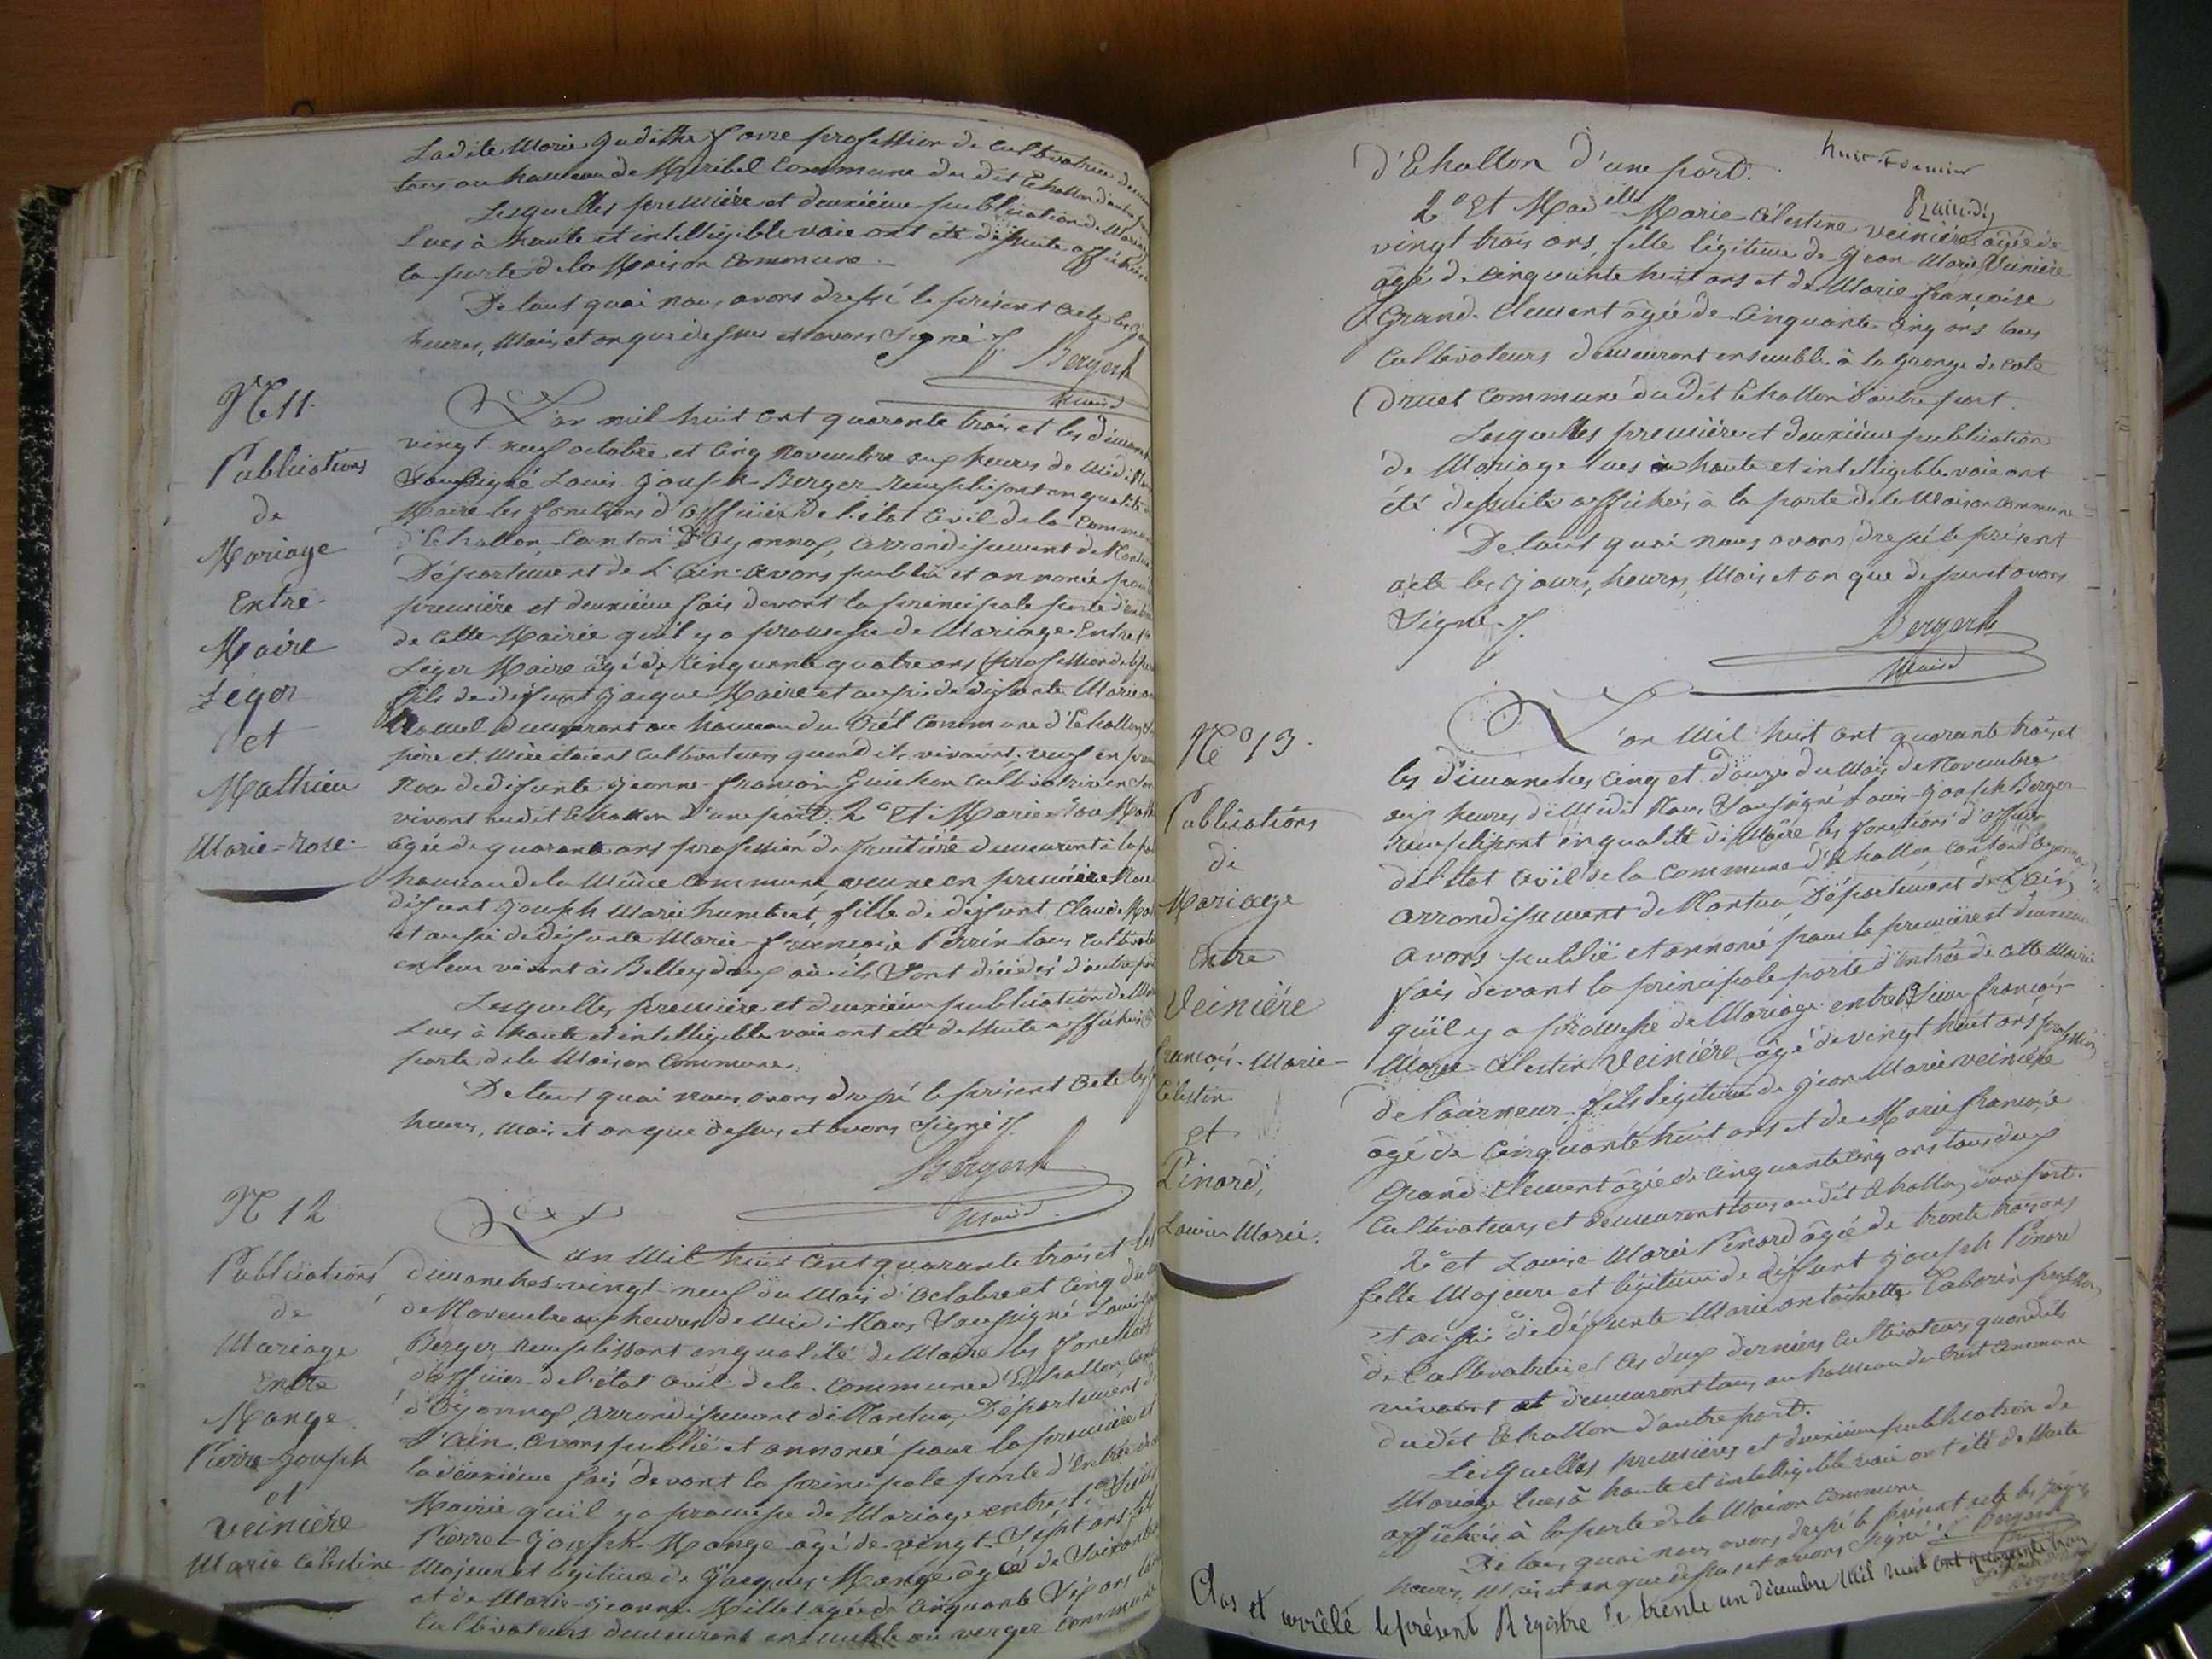 Ladite Marie Judithe favre profession de Cultivatrice
tous au hameau de Miribel Commune du dit Echallon d'autre
Lesquelles première et deuxième publication de Mariage
lues à haute et intelligible voie ont été dessuite affichées
la porte de la Maison Commune.
De tout quoi nous avons dressé le présent acte les jours
heures, Mois et an que dessus et avons Signé Bergerh
Maire
N° 11.
Publications
de
Mariage
Entre
Maire
Léger
et
Mathieu
Marie-rose
L'an mil huit cent quarante trois et les dimanches
vingt neuf octobre et Cinq Novembre aux heures de Midi Nous
Soussigné Louis-Joseph-Berger remplissant en qualité de
Maire les fonctions d'officier de l'état Civil de la Commune
d'Echallon Canton d'Oyonnax, arrondissement de Nantua
Département de L'Ain avons publié et annoncé pour
première et deuxième fois devant la principale porte d'entrée
de cette Mairie qu'il y a promesse de Mariage Entre 1°
Léger Maire âgé de Cinquante quatre ans profession de
fils de défunt Jacque Maire et aussi de défunte Marie
demeurant au hameau du Crêt Commune d'Echallon
père et Mère étaient Cultivateurs quand ils vivaient. veuf en
Noce de défunte Jeanne-françoise Guichon Cultivatrice en Son
vivant audit Echallon d'une part. 2° Et Marie-Rose Math
âgée de quarante ans profession de fruitière demeurant à la
hameau de la Même Commune veuve en première Noce
défunt Joseph Marie humbert, fille de défunt Claude Mat
et aussi de défunte Marie-françoise Perrin tous Cultivateurs
en leur vivant à Belleydoux où ils Sont décédés d'autre part
Lesquelles première et deuxième publication de
Lues à haute et intelligible voie ont été dessuite affichées
porte de la Maison Commune.
De tout quoi nous avons dressé le présent acte les
heures, Mois et an que dessus et avons Signé
Bergerh
Maire
N° 12
Publications
de
Mariage
Entre
Mange
Pierre-Joseph
et
Veinière
Marie Célestine
L'an Mil huit Cent quarante trois et les
dimanches vingt-neuf du Mois d'Octobre et Cinq du
de Novembre aux heures de Midi Nous Soussigné Louis
Berger remplissant en qualité de Maire les fonctions
d'officier de l'état Civil de la Commune d'Echallon Canton
d'Oyonnax, arrondissement de Nantua, Département de
l'Ain, avons publié et annoncé pour la première et
la deuxième fois devant la principale porte d'Entrée
Mairie qu'il y a promesse de Mariage entre, 1° Sieur
Pierre-Joseph-Mange âgé de vingt-Sept ans fils
Majeur et légitime de Jacques Mange âgé de Soixante
et de Marie-Jeanne Millet agée de Cinquante Six ans
Cultivateurs demeurant ensemble au verger Commune
huit et dernier
d'Echallon d'une part.
2° Et Mad.elle Marie Célestine Veinière âgée de
vingt trois ans, fille légitime de Jean Marie Veinière
âgé de Cinquante huit ans et de Marie françoise
Grand-Clement âgée de Cinquante Cinq ans tous
Cultivateurs demeurant ensemble à la grange de Cote
Druet Commune du dit Echallon d'autre part.
Lesquelles première et deuxième publication
de Mariage lues à haute et intelligible voie ont
été dessuite affichées à la porte de la Maison Commune
De tout quoi nous avons dressé le présent
acte les Jours, heures, Mois et an que dessus et avons
Signé
Bergerh
Maire
N° 13.
Publications
de
Mariage
Entre
Veinière
françois-Marie-
Célestin
et
Pinard,
Louise Marie.
L'an Mil huit Cent quarante trois et
les dimanches Cinq et douze du Mois de Novembre
aux heures de Midi Nous Soussigné Louis-Joseph Berger
remplissant en qualité de Maire les fonctions d'officier
de l'état Civil de la Commune d'Echallon Canton d'Oyonnax
arrondissement de Nantua Département de L'Ain,
avons publié et annoncé pour la première et deuxième
fois devant la principale porte d'entrée de cette Mairie
qu'il y a promesse de Mariage entre 1° Sieur françois-
Marie-Célestin Veinière, âgé de vingt huit ans, profession
de tourneur, fils légitime de Jean Marie Veinière
âgé de Cinquante huit ans et de Marie françoise
Grand Clement âgée de Cinquante Cinq ans tous deux
Cultivateurs et demeurant tous audit Echallon d'une part.
2° et Louise-Marie Pinard âgée de trente trois ans
fille Majeure et légitime de défunt Joseph Pinard
et aussi de défunte Marie antoinette Taborin profession
de Cultivatrice et Ces deux derniers Cultivateurs quand ils
vivaient et demeurant tous au hameau du Crêt Commune
du dit Echallon d'autre part.
Lesquelles premières et deuxième publication de
Mariage lues à haute et intelligible voie ont été dessuite
affichées à la porte de la Maison Commune
De tout quoi nous avons dressé le présent acte les Jours,
heures, Mois et an que dessus et avons Signé Bergerh
Clos et arrêté le présent Registre le trente un décembre Mil huit cent quarante trois